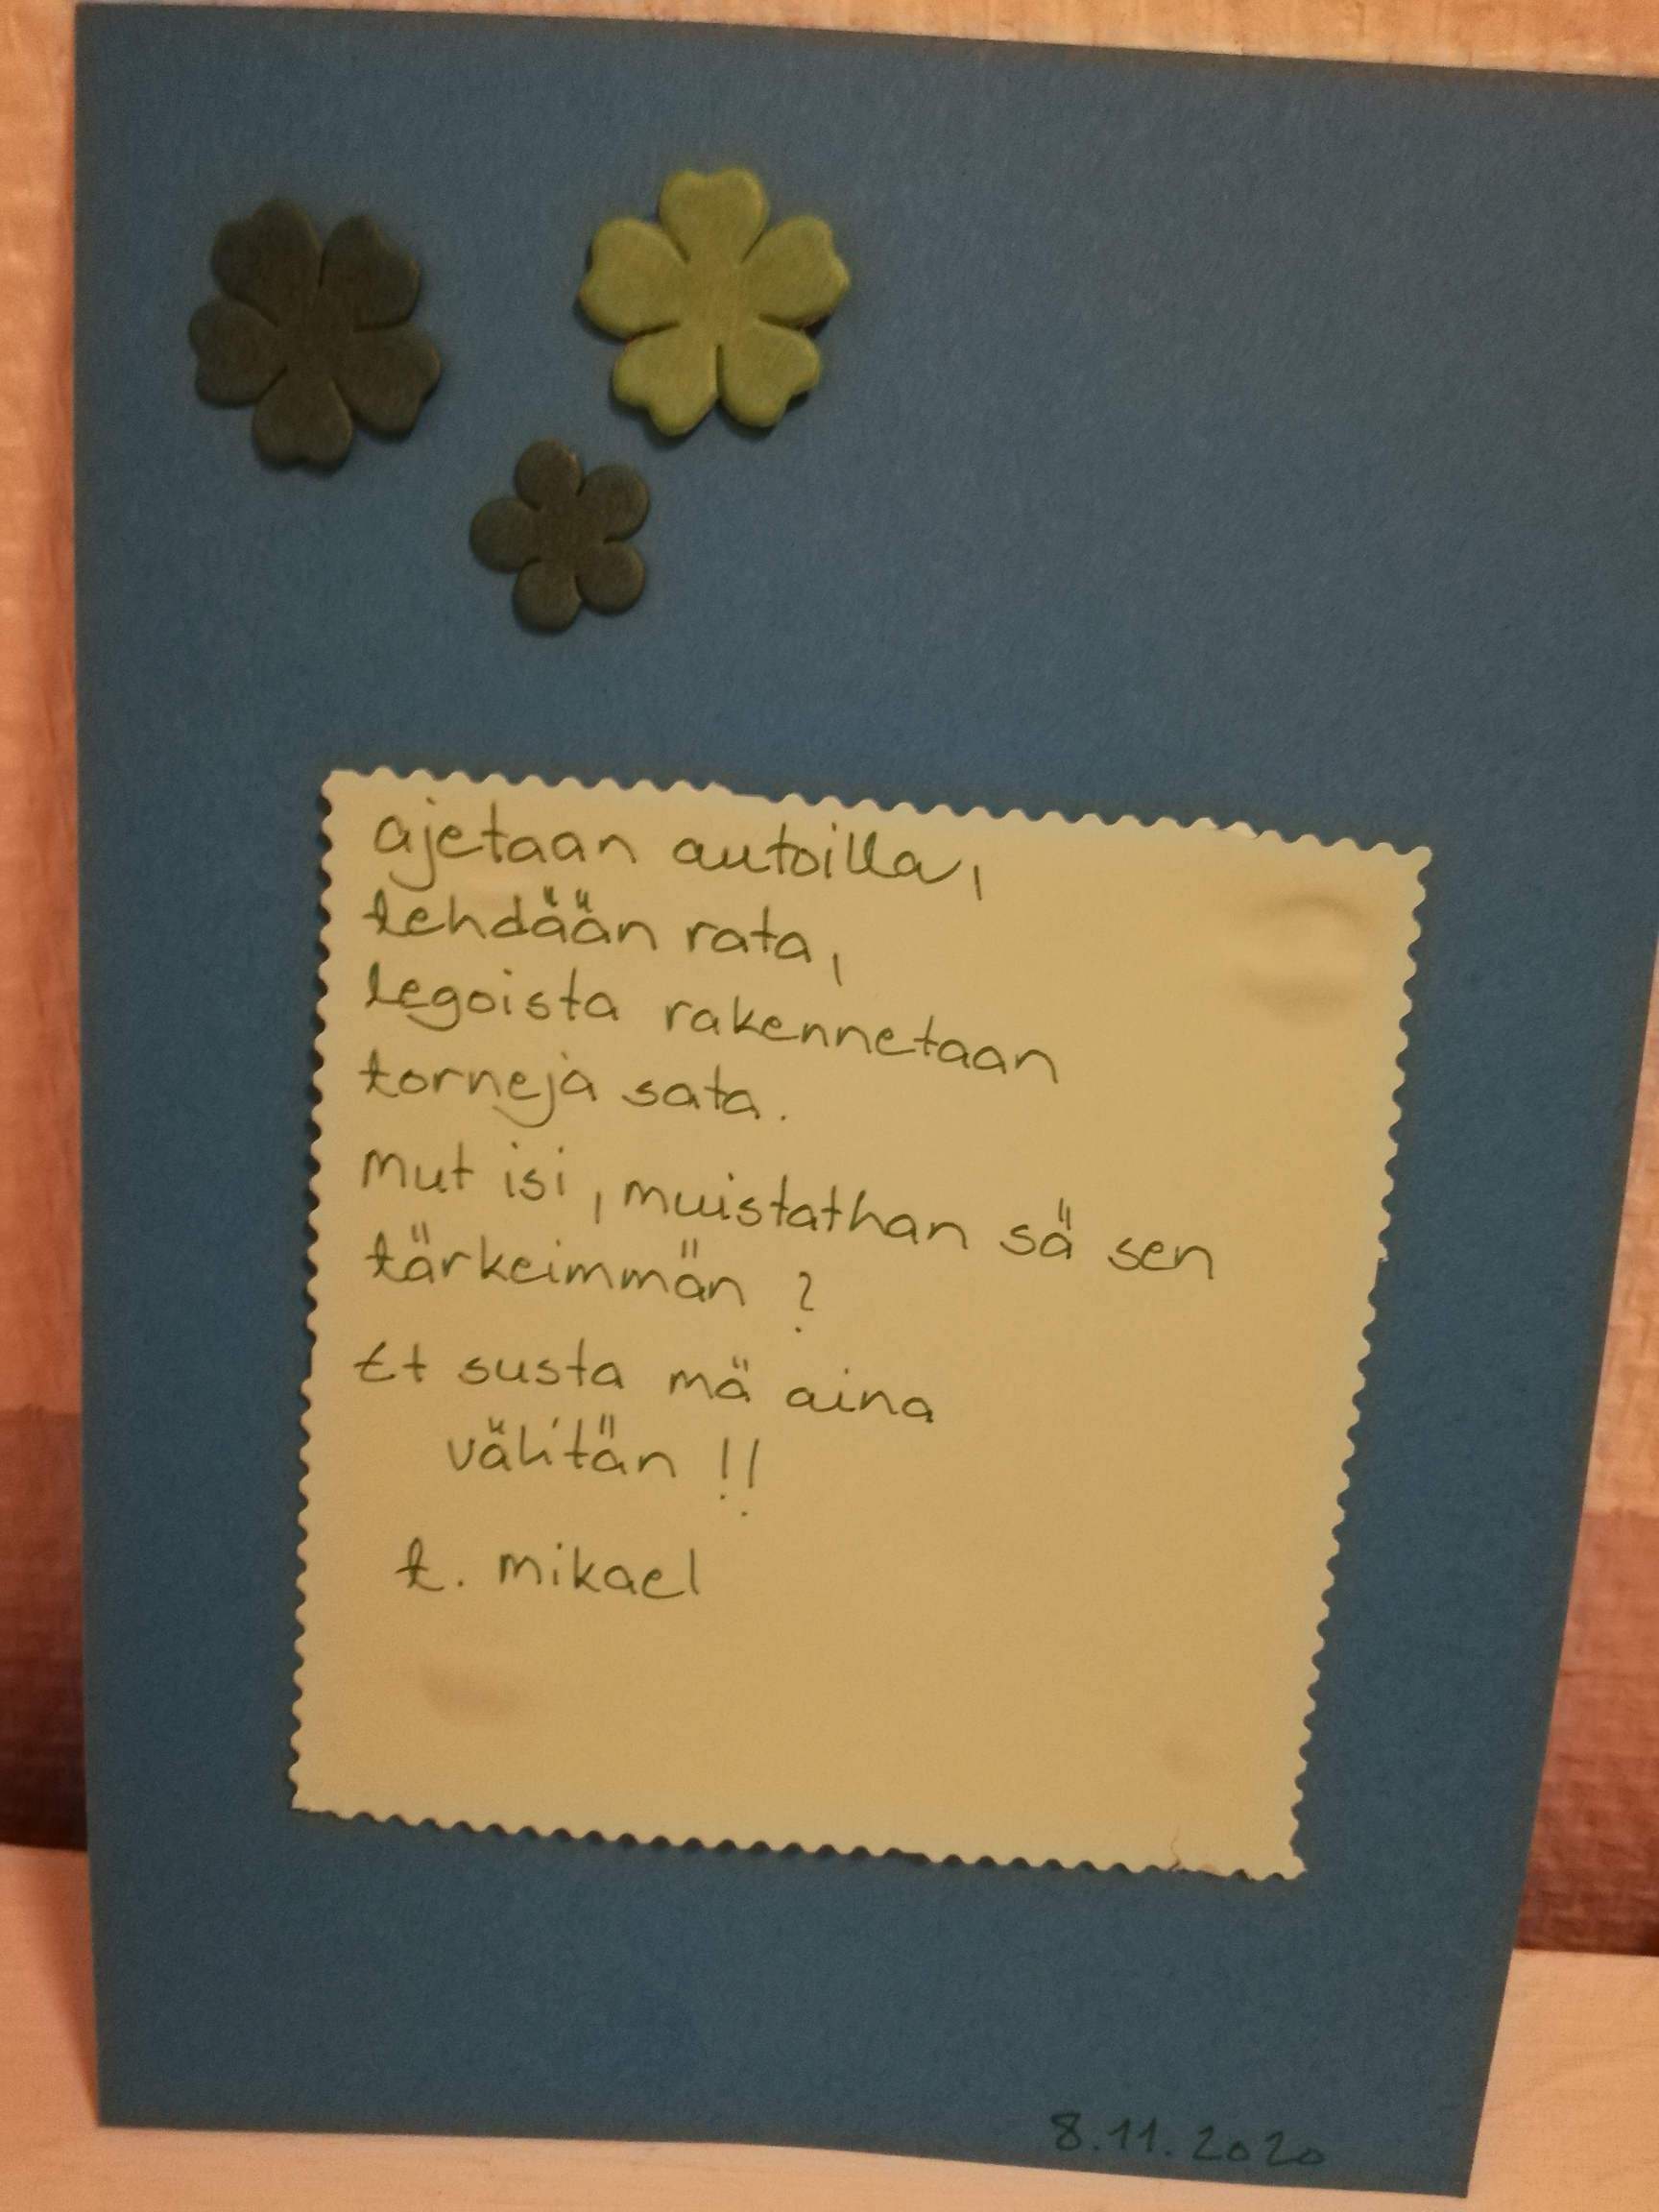 ajetaan autoilla,
tehdään rata,
legoista rakennetaan
torneja sata.
Mut isi, muistathan sä sen
tärkeimmän?
Et susta mä aina
välitän!!
t. mikael
8.11.2020